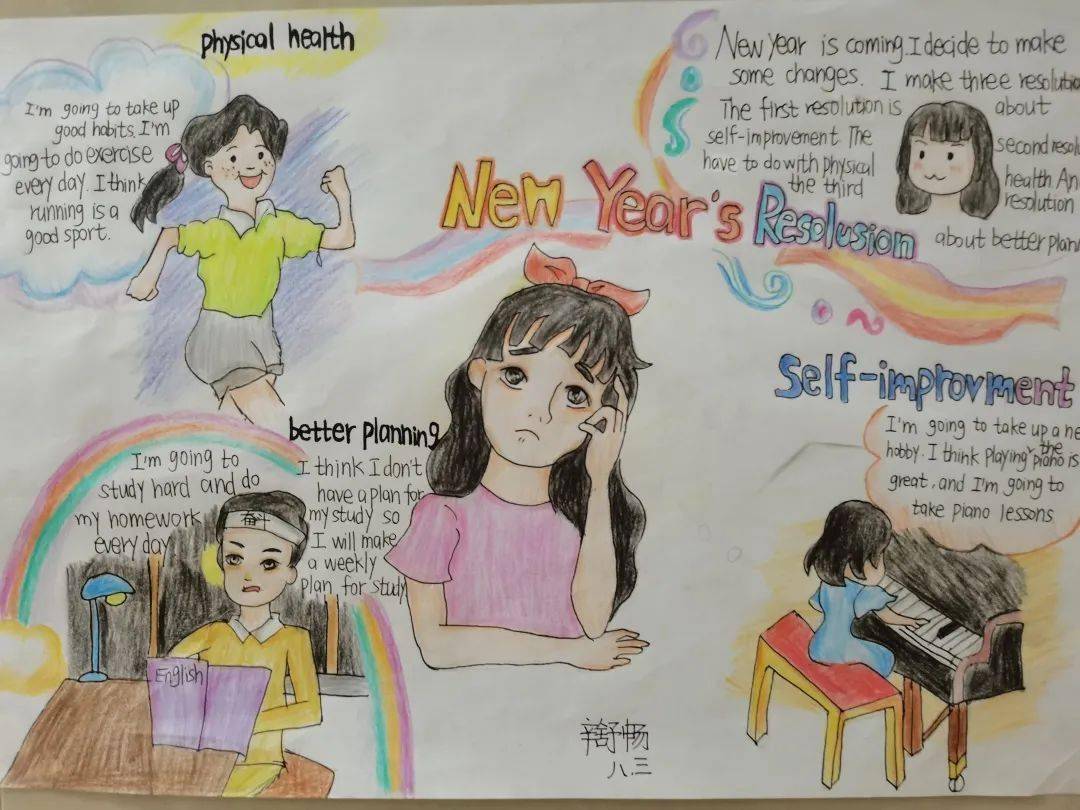 physical health
I'm going to take up
good habits. I'm
going to do exercise
every day. I think
running is a
good sport.
New Year is coming. I decide to make
some changes. I make three
The first resolution is about
self-improvement. The second
have to do with physical health.
the third resolution
about better
New Year's Resolusion
Self-improvment
I'm going to take up a
hobby. I think playing the piano is
great, and I'm going to
take piano lessons
better planning
I'm going to
study hard and do
my homework
every day
I think I don't
have a plan for
my study so
I will make
a weekly
plan for study
奋斗
English
舒畅
八.三